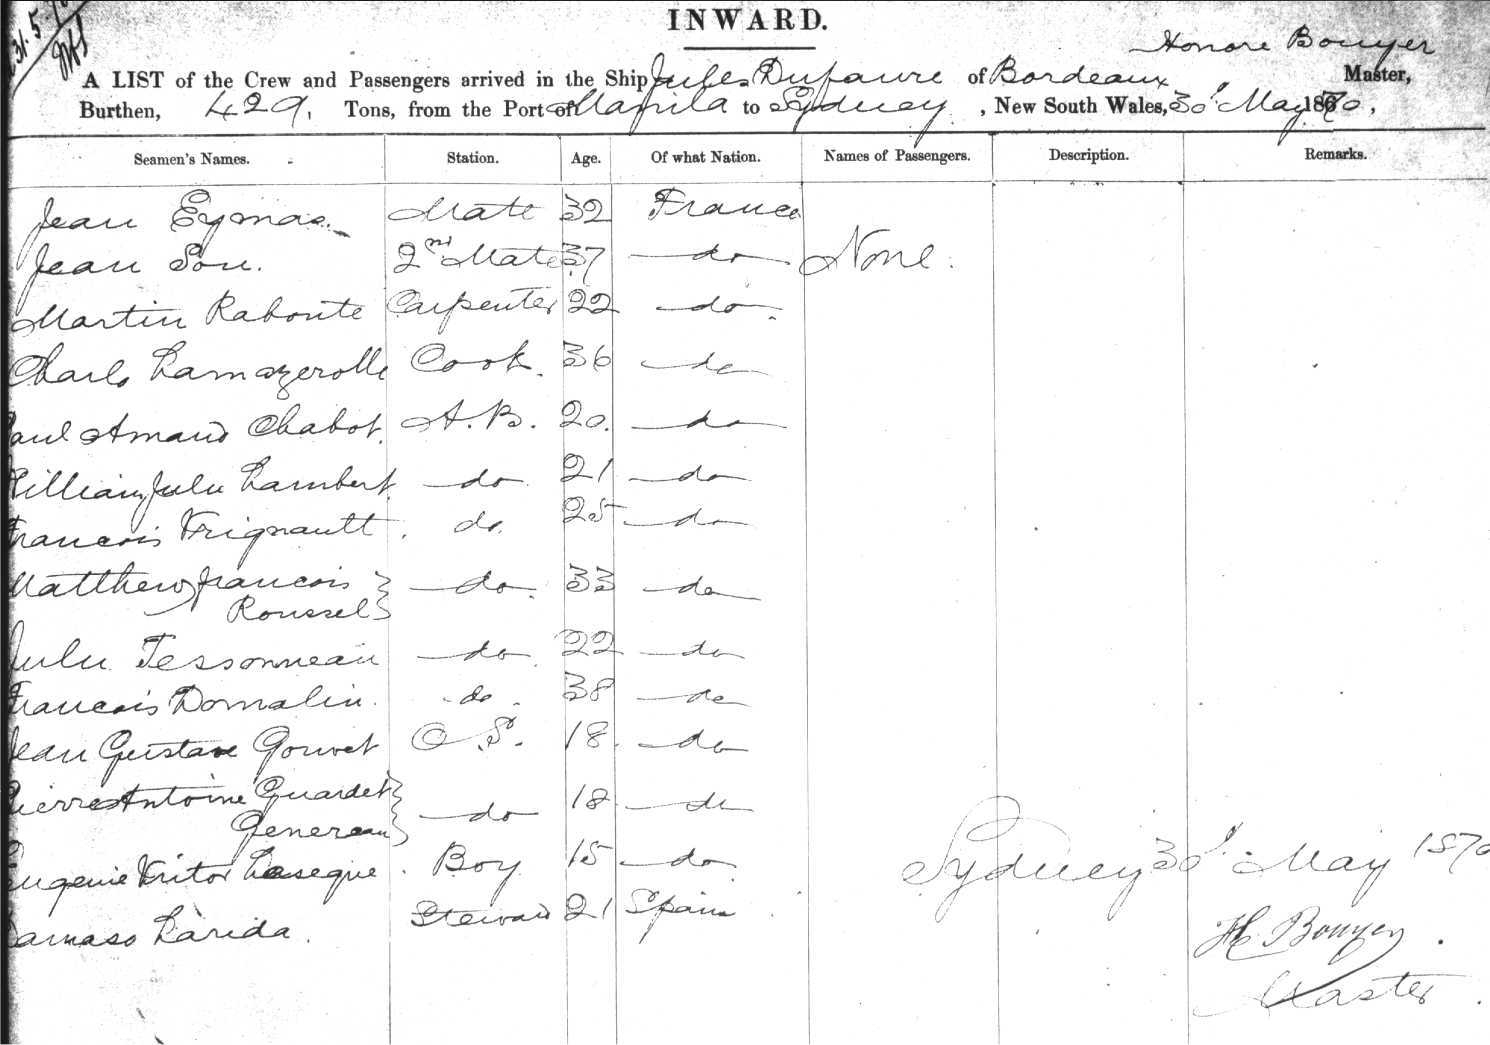 31.5.70
INWARD.
Honore Bouyer
A LIST of the Crew and Passengers arrived in the Ship Jules Dufaure of Bordeaux Master,
Burthen, 429, Tons, from the Port of Manila to Sydney, New South Wales, 30th May 1870,
Seamen's Names. Station. Age. Of what Nation. Names of Passengers. Description. Remarks.
Jean Eymas Mate 32 France
Jean Sou. 2nd Mate 37 do None.
Martin Raboute Carpenter 22 do.
Charls Lamazerolle Cook. 36 do
Paul Amaud Chabot. A.B. 20. do
William Jules Lambert. do 21 do
Francois Vrignault. do. 25 do
Matthew Francois } do. 33 do
Roussel }
Jules Tessonneau do 22 do
Francois Domalin. do. 38 do
Jean Gustave Gouvet O.S. 18. do
Pierre Antoine Guardet } do 18. do
Genereau }
Eugenie Vritor Lasegue. Boy 15 do
Damaso Larida. Steward 21 Spain
Sydney 30th May 1870
H Bouyer.
Master.